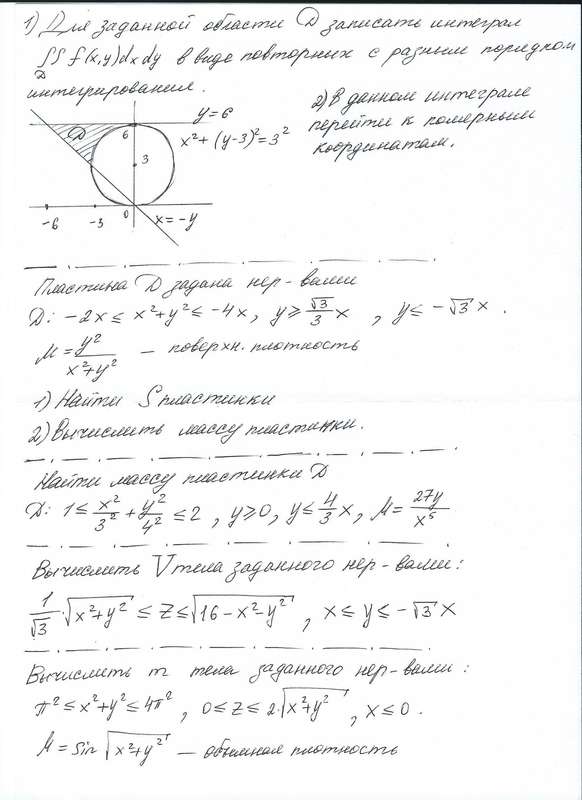 1) Для заданной области D записать интеграл
∫∫ f(x,y)dxdy в виде повторных с разным порядком
D
интегрирования.
2) В данном интеграле
перейти к полярным
координатам.
y=6
D
6
x²+(y-3)²=3²
3
-6 -3 0 x=-y
Пластина D задана нер-вами
D: -2x ≤ x²+y² ≤ -4x, y ≥ √3/3 x , y ≤ -√3 x .
M = y²/(x²+y²) — поверхн. плотность
1) Найти S пластинки
2) Вычислить массу пластинки.
Найти массу пластинки D
D: 1 ≤ x²/3² + y²/4² ≤ 2 , y ≥ 0, y ≤ 4/3 x, M = 27y/x⁵
Вычислить V тела заданного нер-вами:
1/√3 · √(x²+y²) ≤ z ≤ √(16-x²-y²) , x ≤ y ≤ -√3 x
Вычислить m тела заданного нер-вами:
π² ≤ x²+y² ≤ 4π² , 0 ≤ z ≤ 2·√(x²+y²) , x ≤ 0 .
M = sin √(x²+y²) — объёмная плотность